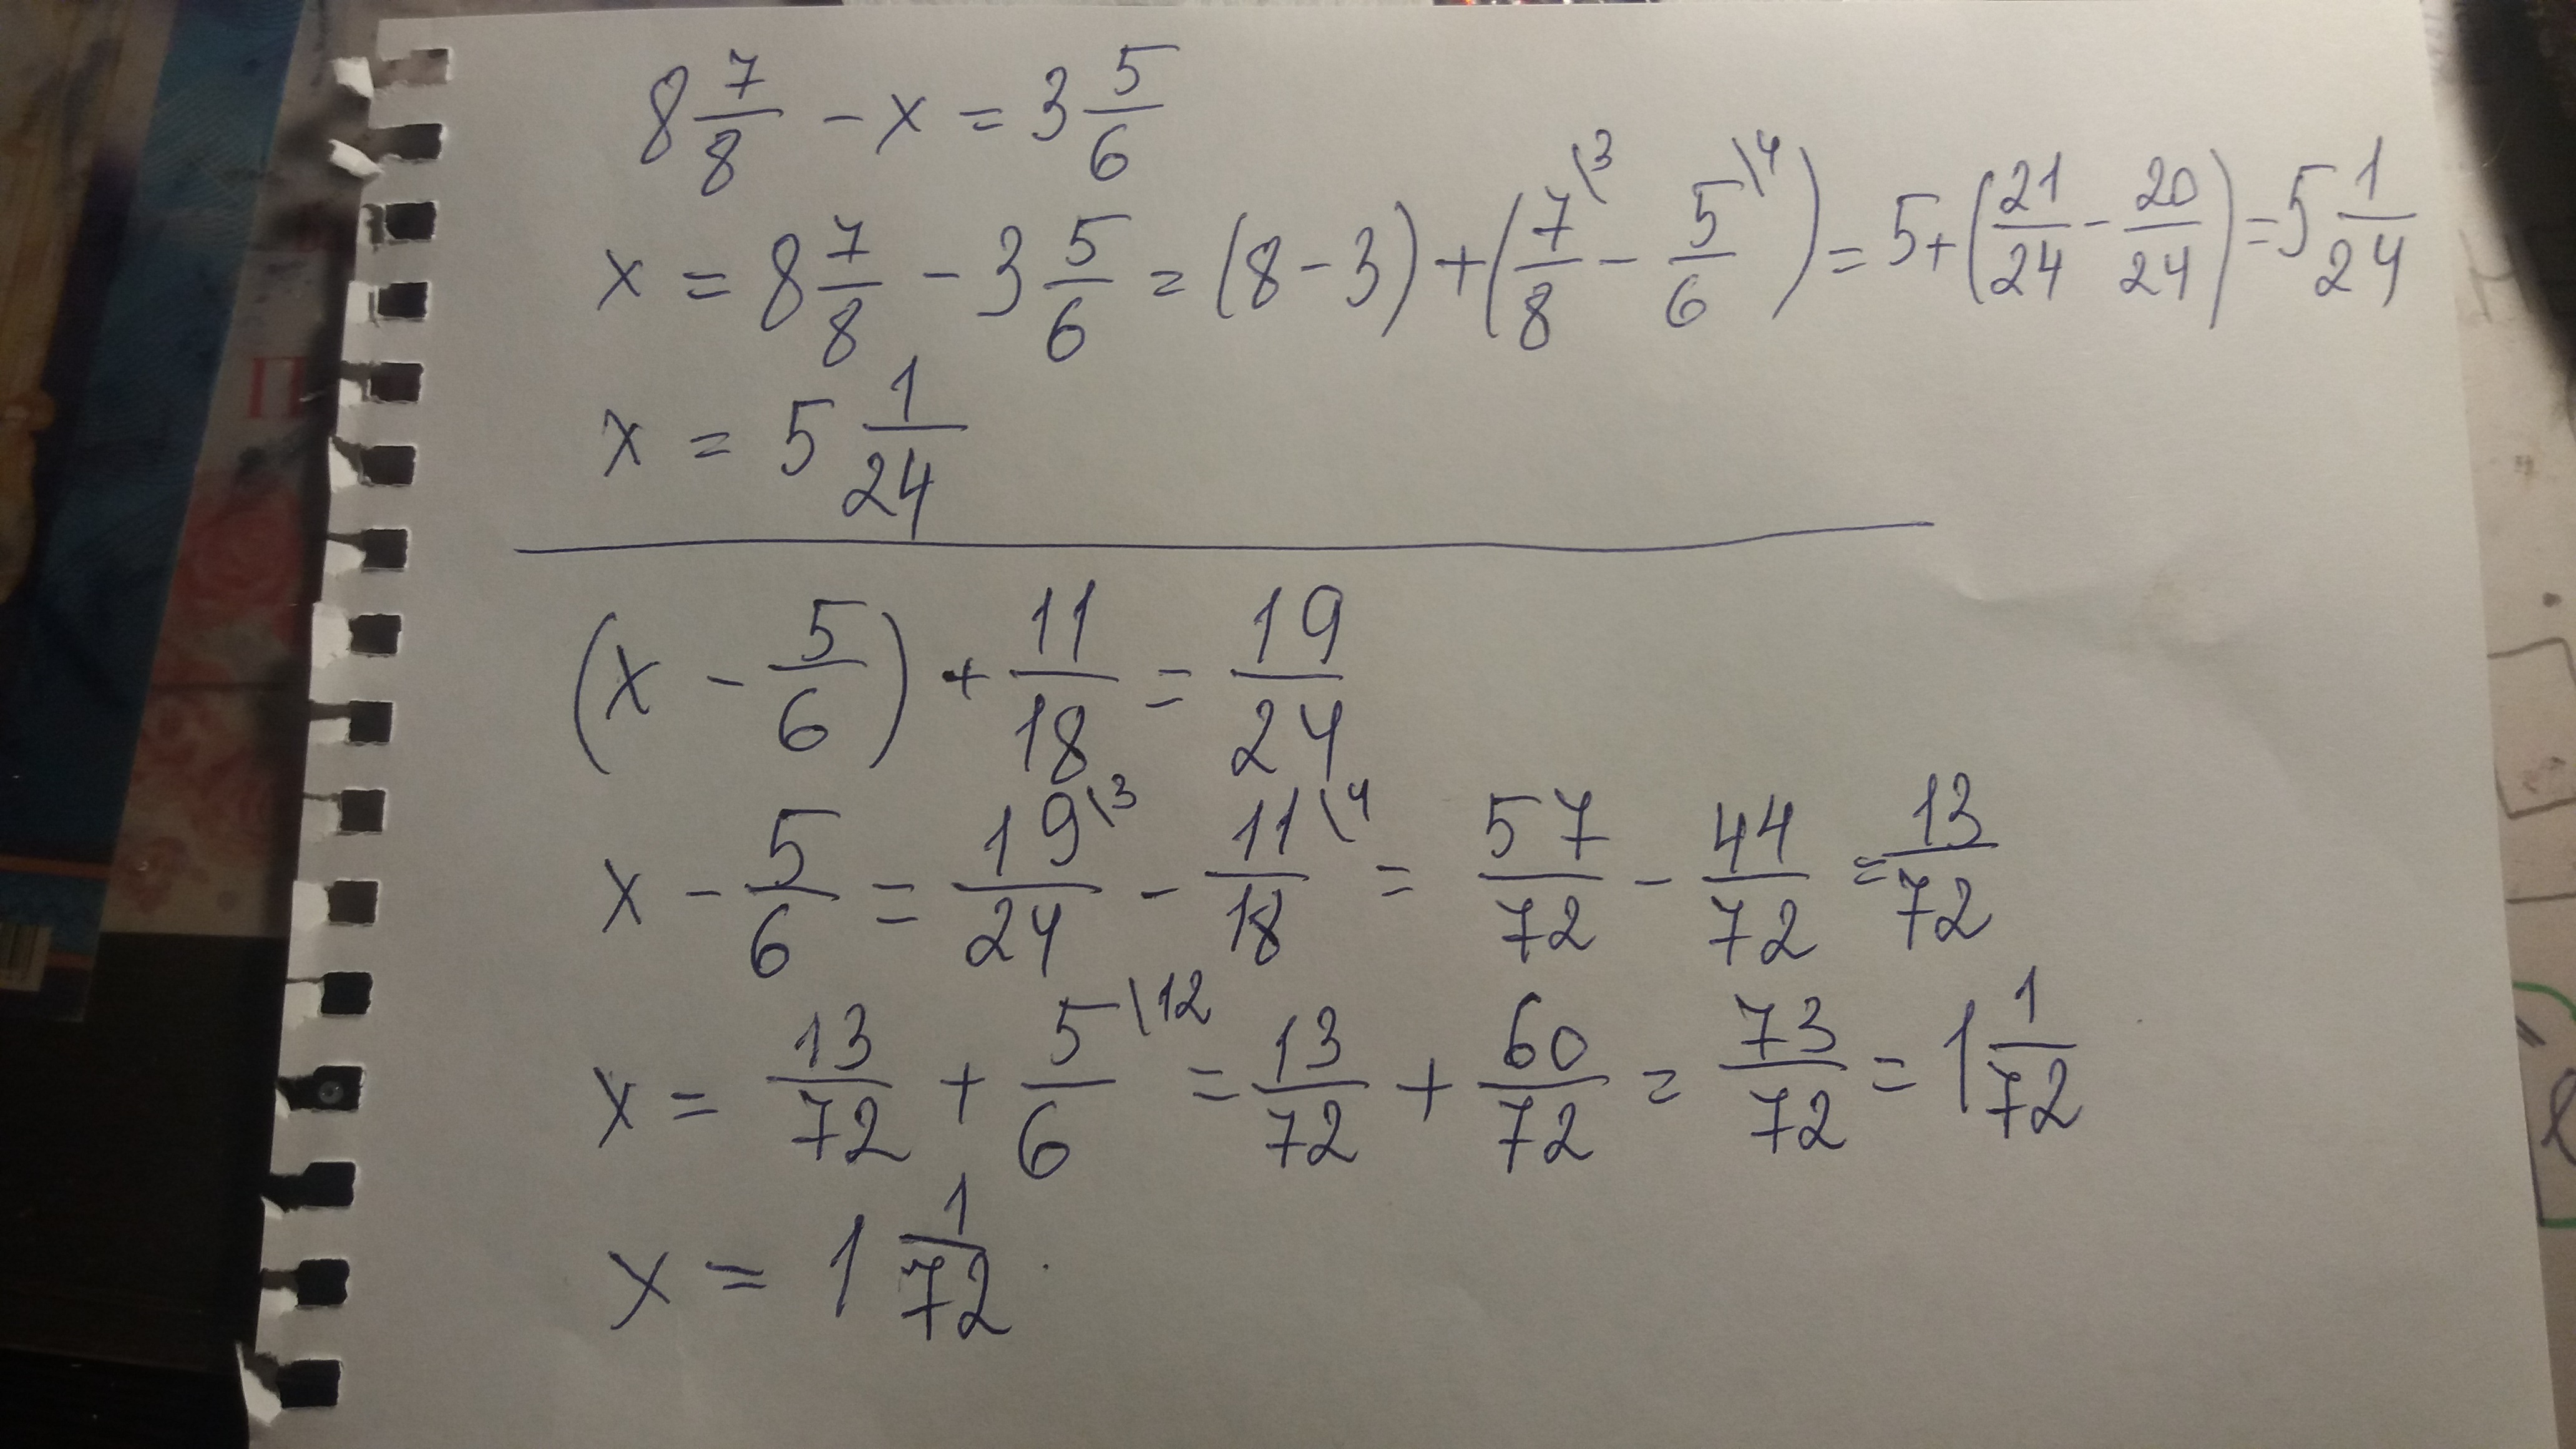 8 7/8 - x = 3 5/6
x = 8 7/8 - 3 5/6 = (8 - 3) + (7\3/8 - 5\4/6) = 5 + (21/24 - 20/24) = 5 1/24
x = 5 1/24
(x - 5/6) + 11/18 = 19/24
x - 5/6 = 19\3/24 - 11\4/18 = 57/72 - 44/72 = 13/72
x = 13/72 + 5\12/6 = 13/72 + 60/72 = 73/72 = 1 1/72
x = 1 1/72